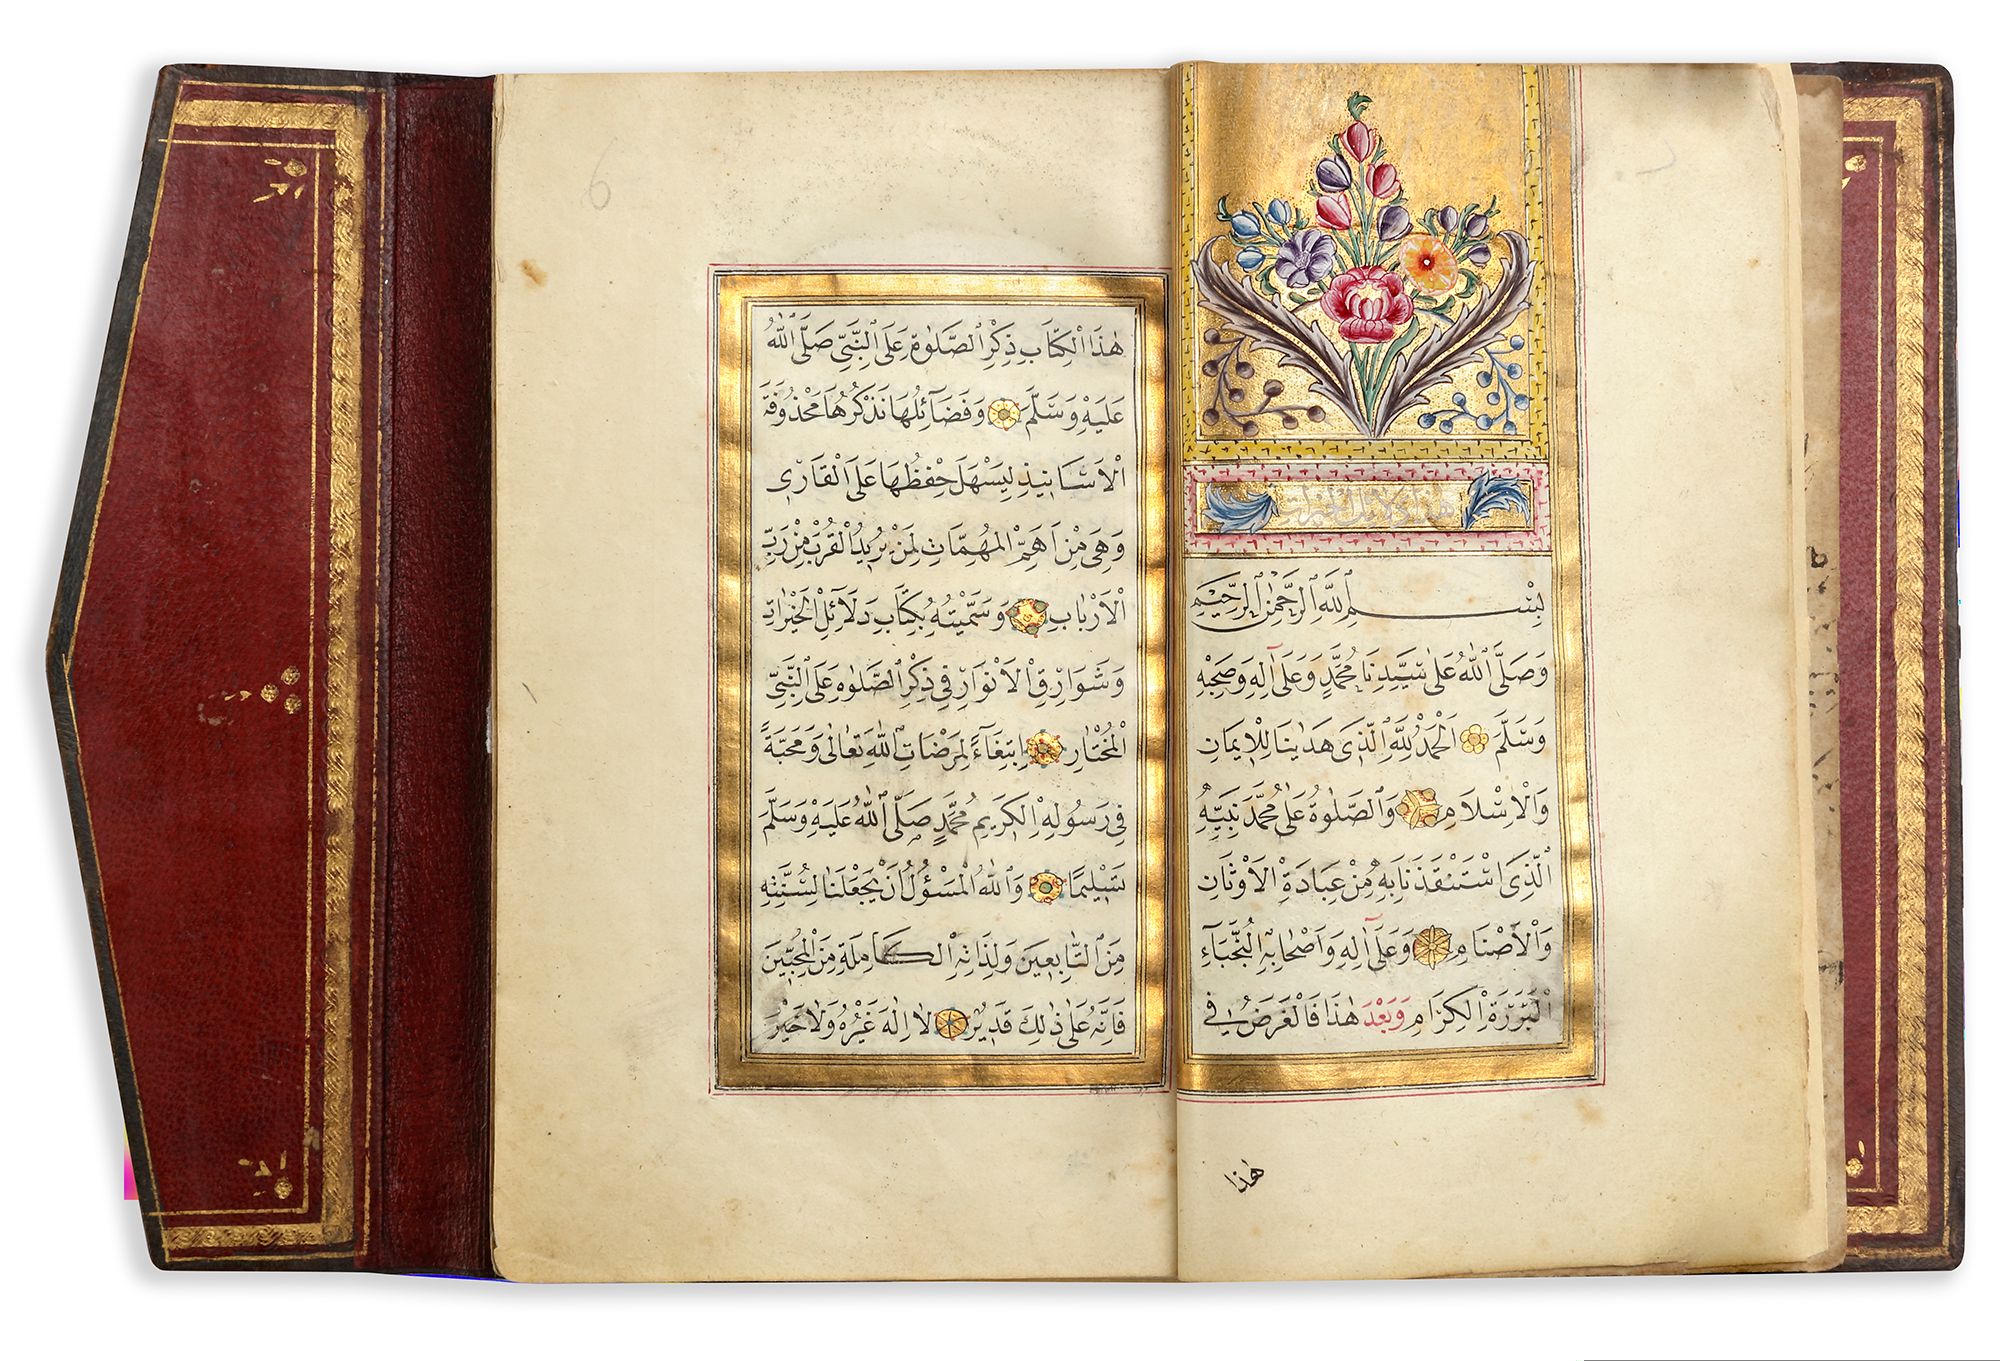 هٰذا دلائل الخيرات
بِسْمِ اللّٰهِ الرَّحْمٰنِ الرَّحِيمِ
وَصَلَّى اللّٰهُ عَلٰى سَيِّدِنَا مُحَمَّدٍ وَعَلٰى اٰلِهِ وَصَحْبِهِ
وَسَلَّمَ اَلْحَمْدُ لِلّٰهِ الَّذِى هَدٰينَا لِلْاِيمَانِ
وَالْاِسْلَامِ وَالصَّلٰوةُ عَلٰى مُحَمَّدٍ نَبِيِّهِ
الَّذِى اسْتَنْقَذَنَا بِهِ مِنْ عِبَادَةِ الْاَوْثَانِ
وَالْاَصْنَامِ وَعَلٰى اٰلِهِ وَاَصْحَابِهِ النُّجَبَاءِ
الْبَرَرَةِ الْكِرَامِ وَبَعْدَ هٰذَا فَالْغَرَضُ فِى
هٰذا
هٰذَا الْكِتَابِ ذِكْرُ الصَّلٰوةِ عَلَى النَّبِىِّ صَلَّى اللّٰهُ
عَلَيْهِ وَسَلَّمَ وَفَضَآئِلُهَا نَذْكُرُهَا مَحْذُوفَةَ
الْاَسَانِيذِ لِيَسْهَلَ حِفْظُهَا عَلَى الْقَارِى
وَهِىَ مِنْ اَهَمِّ الْمُهِمَّاتِ لِمَنْ يُرِيدُ الْقُرْبَ مِنْ رَبِّ
الْاَرْبَابِ وَسَمَّيْتُهُ بِكِتَابِ دَلَآئِلِ الْخَيْرَاتِ
وَشَوَارِقِ الْاَنْوَارِ فِى ذِكْرِ الصَّلٰوةِ عَلَى النَّبِىِّ
الْمُخْتَارِ اِبْتِغَآءً لِمَرْضَاتِ اللّٰهِ تَعَالٰى وَمَحَبَّةً
فِى رَسُولِهِ الْكَرِيمِ مُحَمَّدٍ صَلَّى اللّٰهُ عَلَيْهِ وَسَلَّمَ
تَسْلِيمًا وَاللّٰهُ الْمَسْؤُلُ اَنْ يَجْعَلَنَا لِسُنَّتِهِ
مِنَ التَّابِعِينَ وَلِذَاتِهِ الْكَامِلَةِ مِنَ الْمُحِبِّينَ
فَاِنَّهُ عَلٰى ذٰلِكَ قَدِيرٌ لَا اِلٰهَ غَيْرُهُ وَلَا خَيْرُ
6